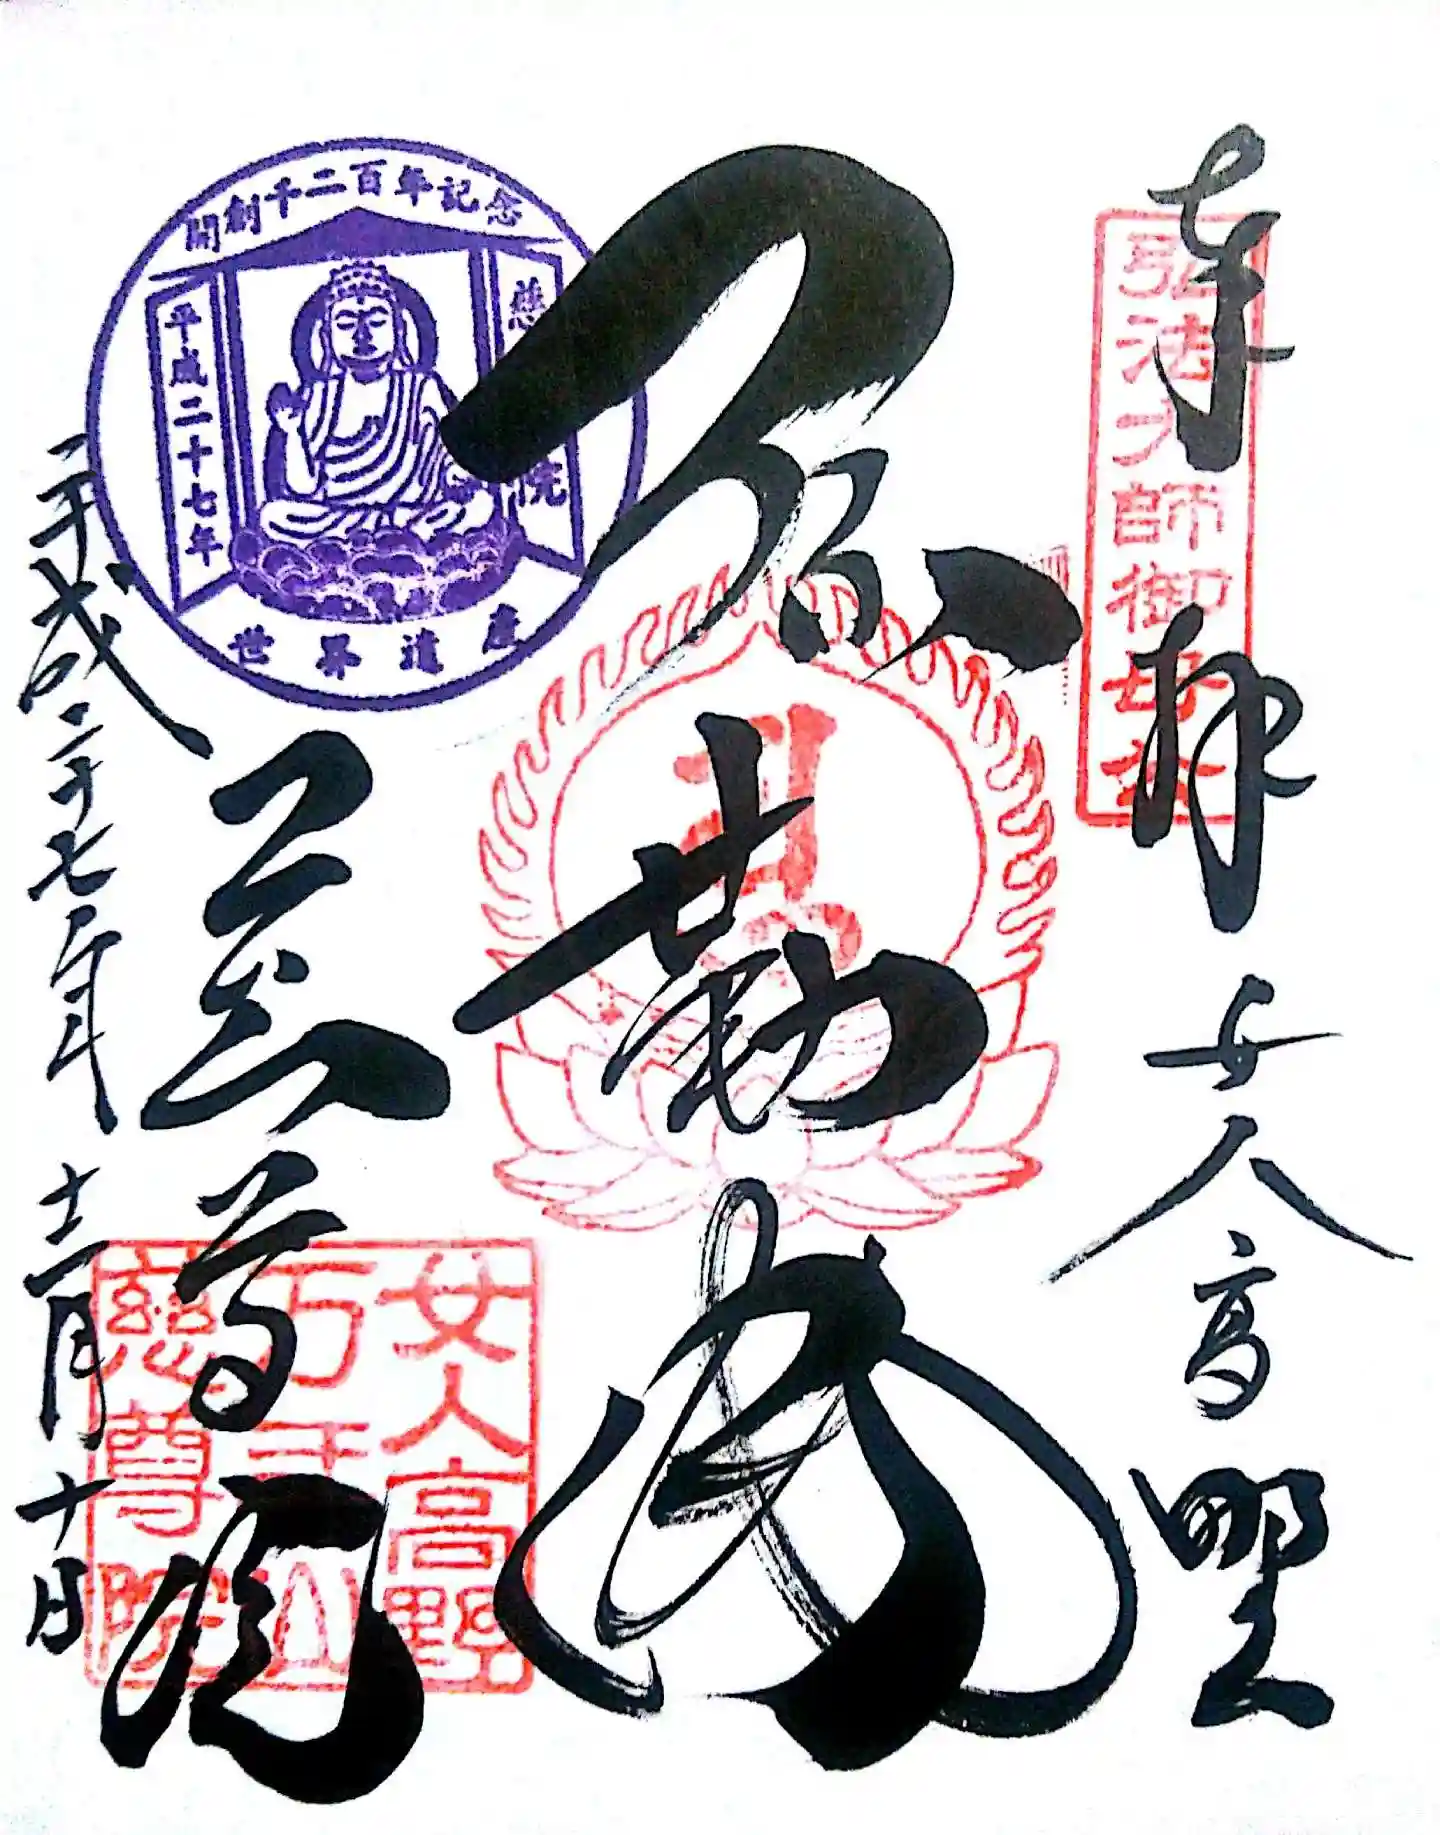 奉拝 女人高野
弘法大師御母公
弥勒
開創千二百年記念
慈尊院
平成二十七年
世界遺産
慈尊院
平成二十七年 十二月 十日
女人高野
万年山
慈尊院